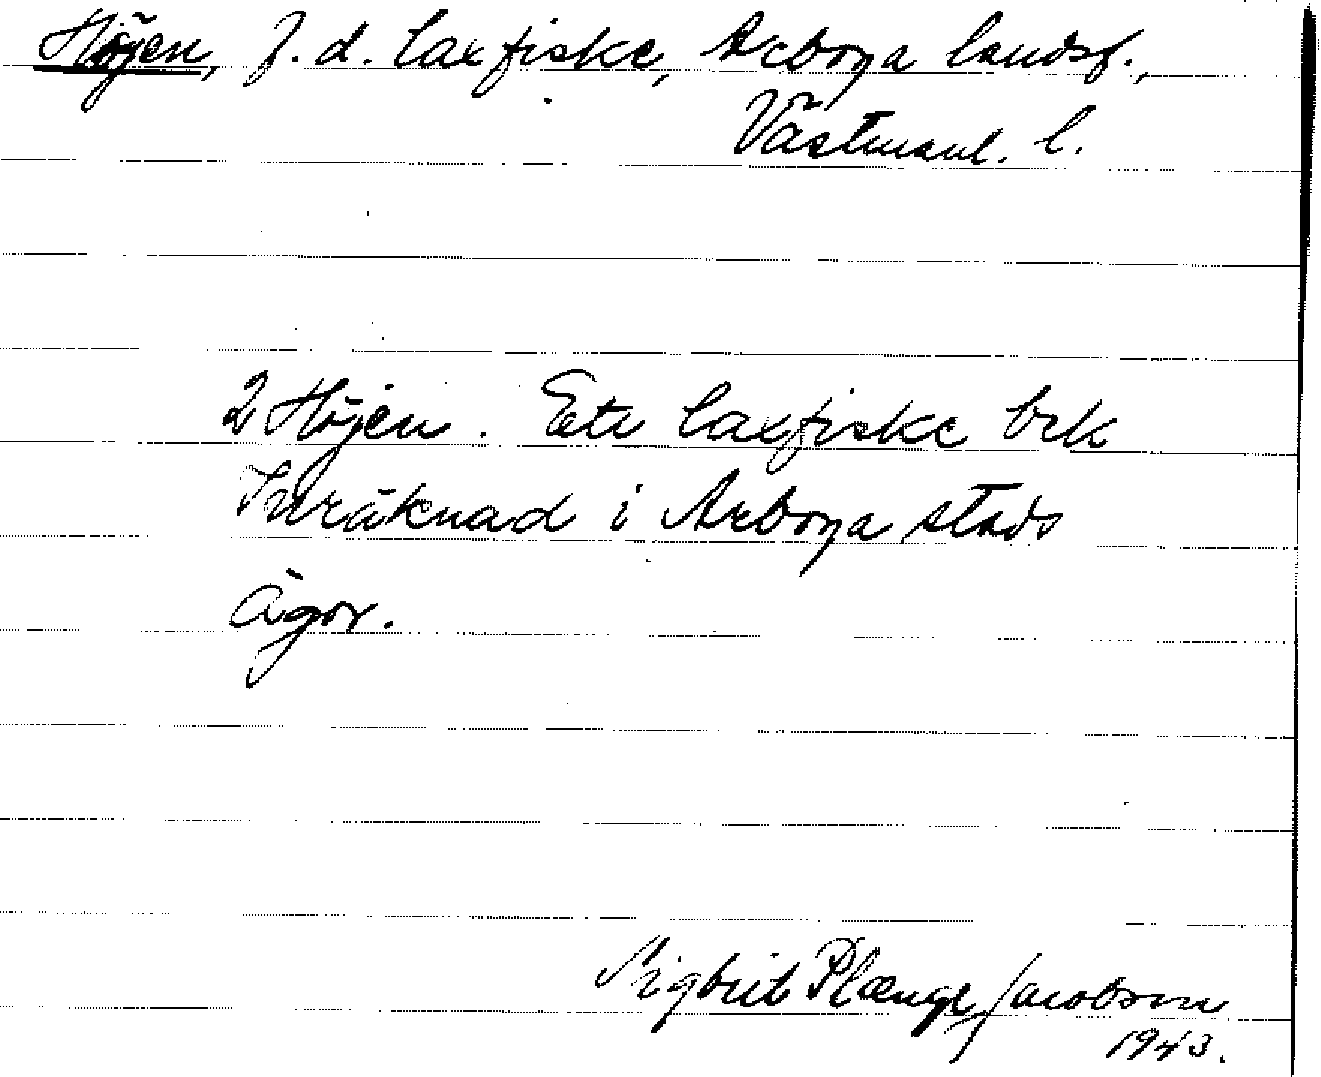 Höjen, f. d. laxfiske, Arboga landsf.,
Västmanl. l.
2 Höjen. Ett laxfiske brk
Inräknad i Arboga stads
ägor.
Sigbrit Plænge Jacobson
1943.